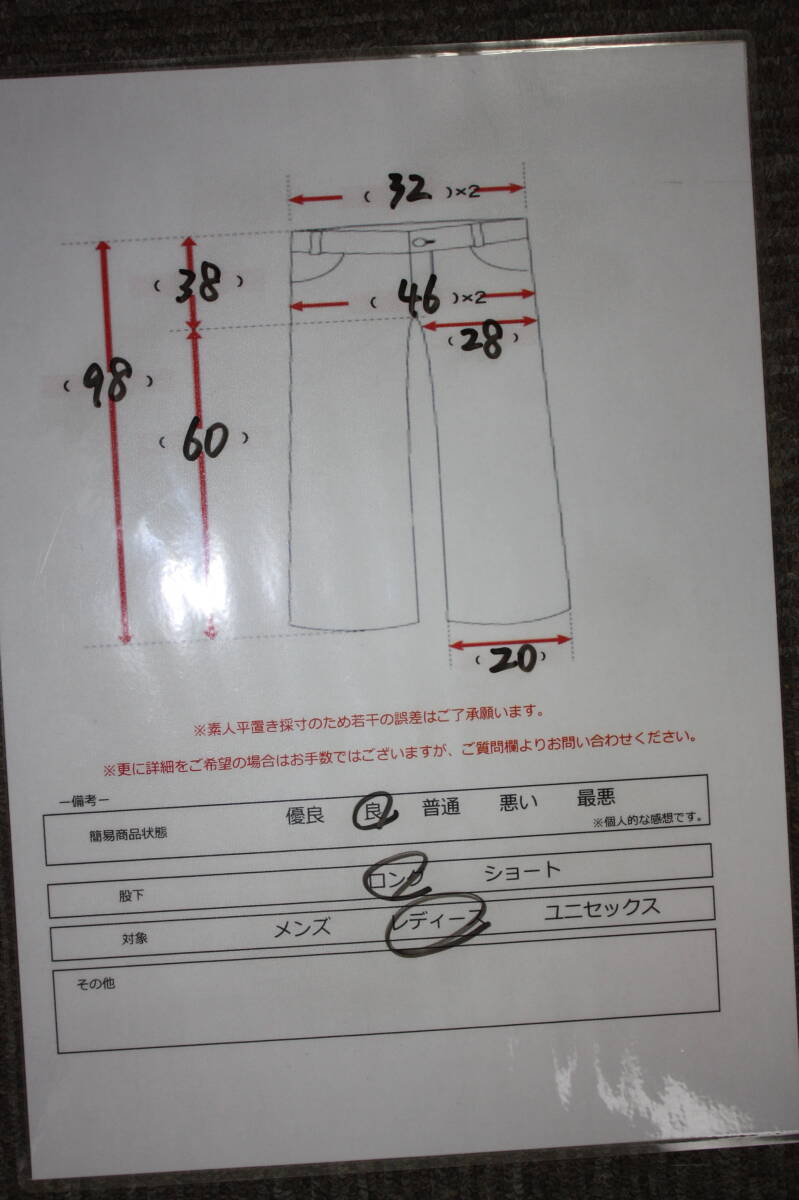 (32)×2
(38)
(46)×2
(28)
(98)
(60)
(20)
※素人平置き採寸のため若干の誤差はご了承願います。
※更に詳細をご希望の場合はお手数ではございますが、ご質問欄よりお問い合わせください。
ー備考ー
簡易商品状態 優良 良 普通 悪い 最悪
※個人的な感想です。
股下 ロング ショート
対象 メンズ レディース ユニセックス
その他